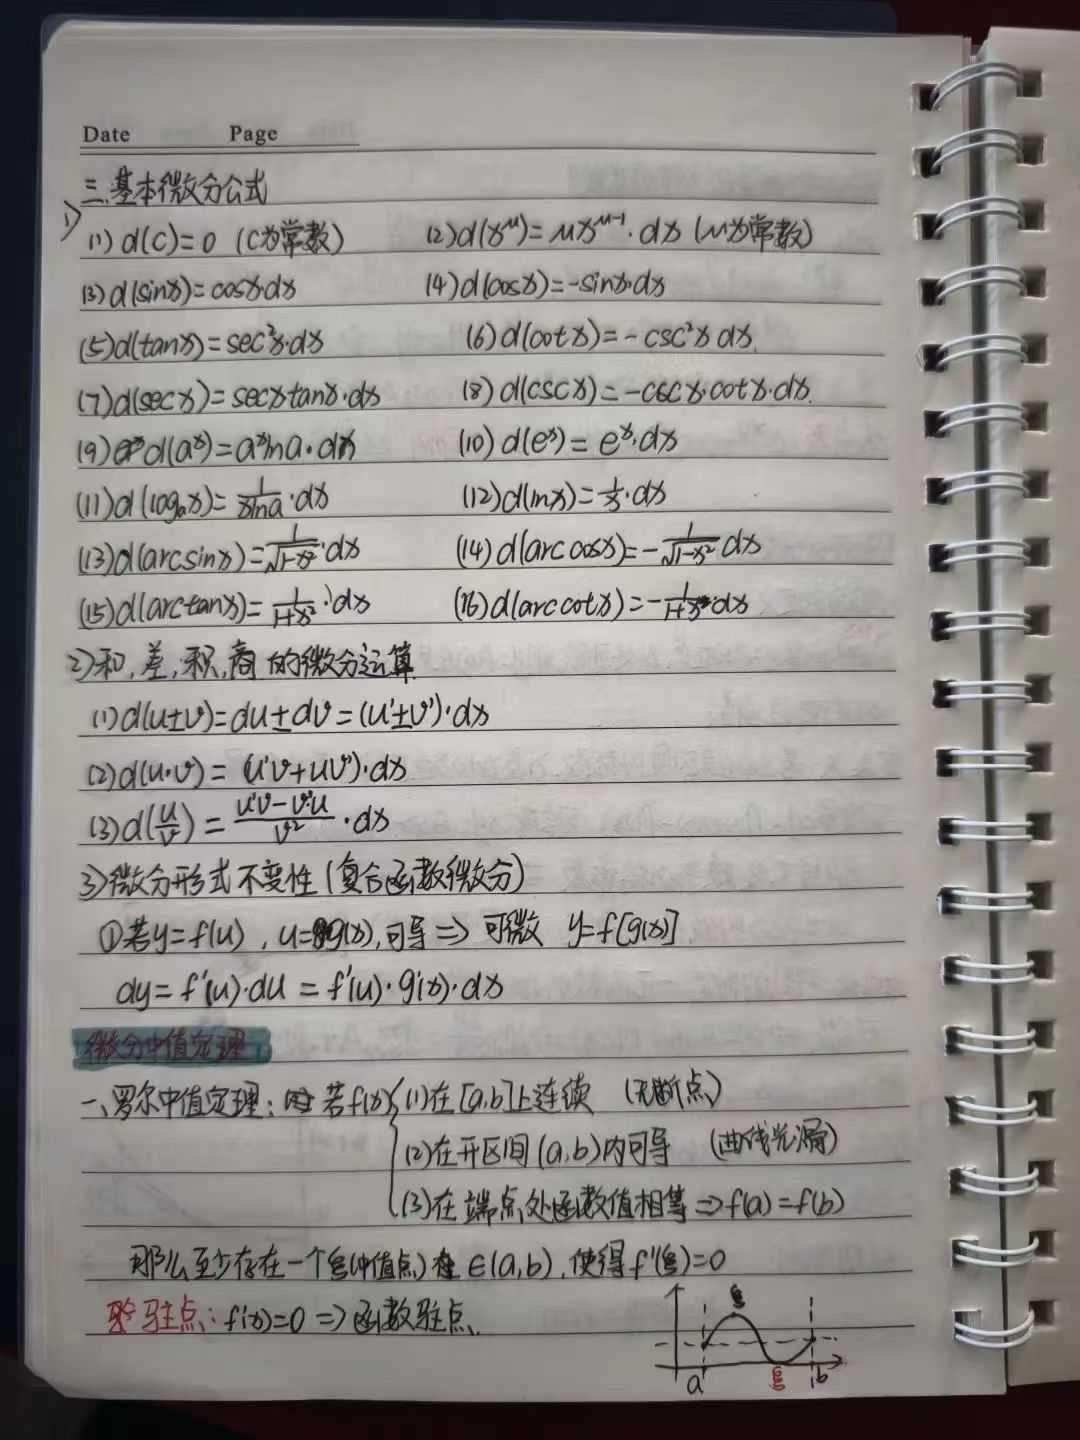 Date Page
三.基本微分公式
1) (1) d(c)=0 (C为常数) (2) d(x^μ)=μx^(μ-1)·dx (μ为常数)
(3) d(sinx)=cosx·dx (4) d(cosx)=-sinx·dx
(5) d(tanx)=sec²x·dx (6) d(cotx)=-csc²x dx.
(7) d(secx)=secxtanx·dx (8) d(cscx)=-cscx·cotx·dx.
(9) d(a^x)=a^x lna·dx (10) d(e^x)=e^x·dx
(11) d(logₐx)=1/(xlna)·dx (12) d(lnx)=1/x·dx
(13) d(arcsinx)=1/√(1-x²)·dx (14) d(arccosx)=-1/√(1-x²) dx
(15) d(arctanx)=1/(1+x²)·dx (16) d(arccotx)=-1/(1+x²)·dx
2)和,差,积,商的微分运算
(1) d(u±v)=du±dv=(u'±v')·dx
(2) d(u·v)=(u'v+uv')·dx
(3) d(u/v)=(u'v-v'u)/v²·dx
3)微分形式不变性(复合函数微分)
①若y=f(u),u=g(x),可导=>可微 y=f[g(x)]
dy=f'(u)·du=f'(u)·g'(x)·dx
微分中值定理
一、罗尔中值定理: 若f(x) (1)在[a,b]上连续 (无断点)
(2)在开区间(a,b)内可导 (曲线光滑)
(3)在端点处函数值相等=>f(a)=f(b)
那么至少存在一个ξ(中值点)∈(a,b),使得f'(ξ)=0
驻点: f'(x)=0=>函数驻点.
ξ
a ξ b